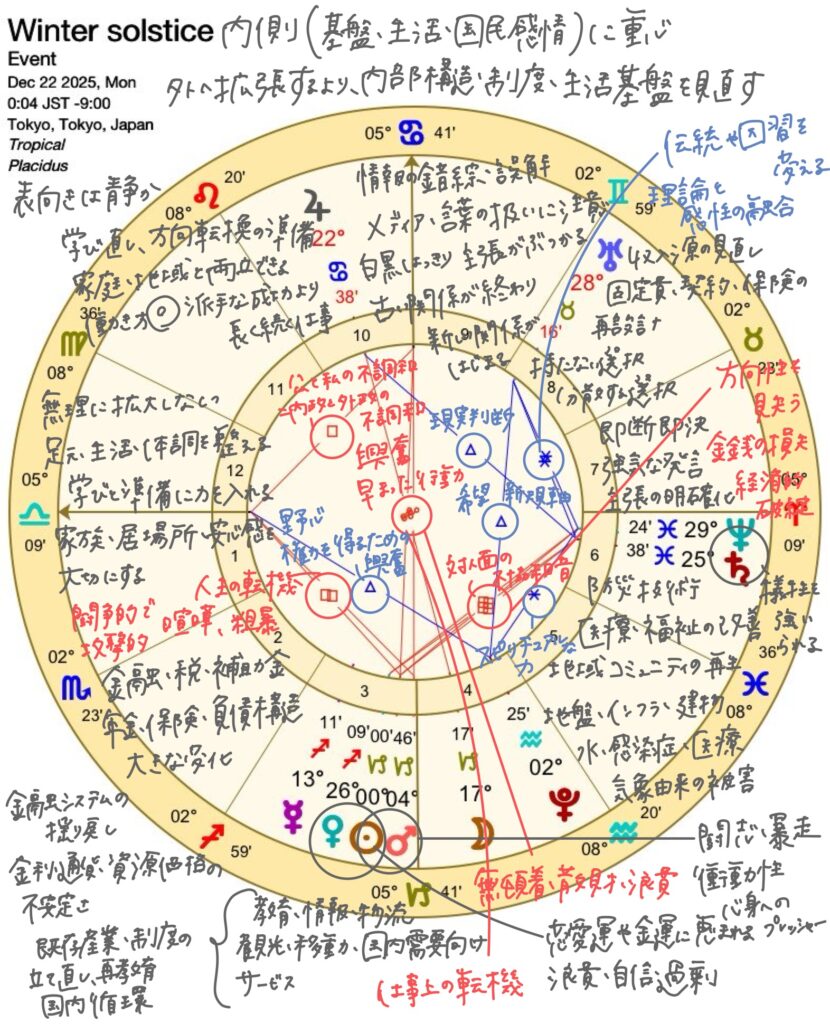 Winter solstice
Event
Dec 22 2025, Mon
0:04 JST -9:00
Tokyo, Tokyo, Japan
Tropical
Placidus
内側(基盤、生活、国民感情)に重心
外へ拡張するより、内部構造、制度、生活基盤を見直す
05° ♋ 41'
02° ♊ 59'
02° ♉ 23'
05° ♈ 09'
36' ♓ 08°
20' ♒ 08°
05° ♑ 41'
02° ♐ 59'
02° ♏ 23'
05° ♎ 09'
36' ♍ 08°
20' ♌ 08°
♃ 22° ♋ 38'
♅ 28° ♉ 16'
♆ 29° ♓ 24'
♄ 25° ♓ 38'
♇ 02° ♒ 25'
☽ 17° ♑ 17'
♂ 04° ♑ 46'
☉ 00° ♑ 00'
♀ 26° ♐ 09'
☿ 13° ♐ 11'
1
2
3
4
5
6
7
8
9
10
11
12
表向きは静か
学び直し、方向転換の準備
家庭、地域と両立できる
働き方◎ 派手な成功より
長く続く仕事
情報の錯綜、誤解
メディア、言葉の扱いに注意
白黒はっきり 主張がぶつかる
古い関係が終わり
新しい関係が
はじまる
伝統や因習を
変える
理論と
感性の融合
収入源の見直し
固定費、契約、保険の
再設計
持たない選択
分散する選択
即断即決
強気な発言
主張の明確化
方向性を
見失う
金銭の損失
経済的
破綻
無理に拡大しない
足元、生活、体調を整える
学びと準備に力を入れる
家族、居場所、安心感を
大切にする
公と私の不調和
=内政と外政の
不調和
興奮
早まった行動
現実判断
希望 新規軸
野心
権力を得るための
興奮
対人面の
不協和音
人生の転機
闘争的で 喧嘩、粗暴
攻撃的
スピリチュアルな
力
犠牲を
強い
られる
防災、技術
医療、福祉の改善
地域コミュニティの再生
地盤、インフラ、建物
水、感染症、医療
気象由来の被害
金融、税、補助金
年金、保険、負債構造
大きな変化
金融システムの
揺り戻し
金利、通貨、資源価格の
不安定さ
既存産業、制度の
立て直し、再教育
国内循環
教育、情報、物流
観光、移動、国内需要向け
サービス
無頓着、散財、浪費
仕事上の転機
闘志、暴走
衝動性
心身への
プレッシャー
恋愛運や金運に恵まれる
浪費、自信過剰